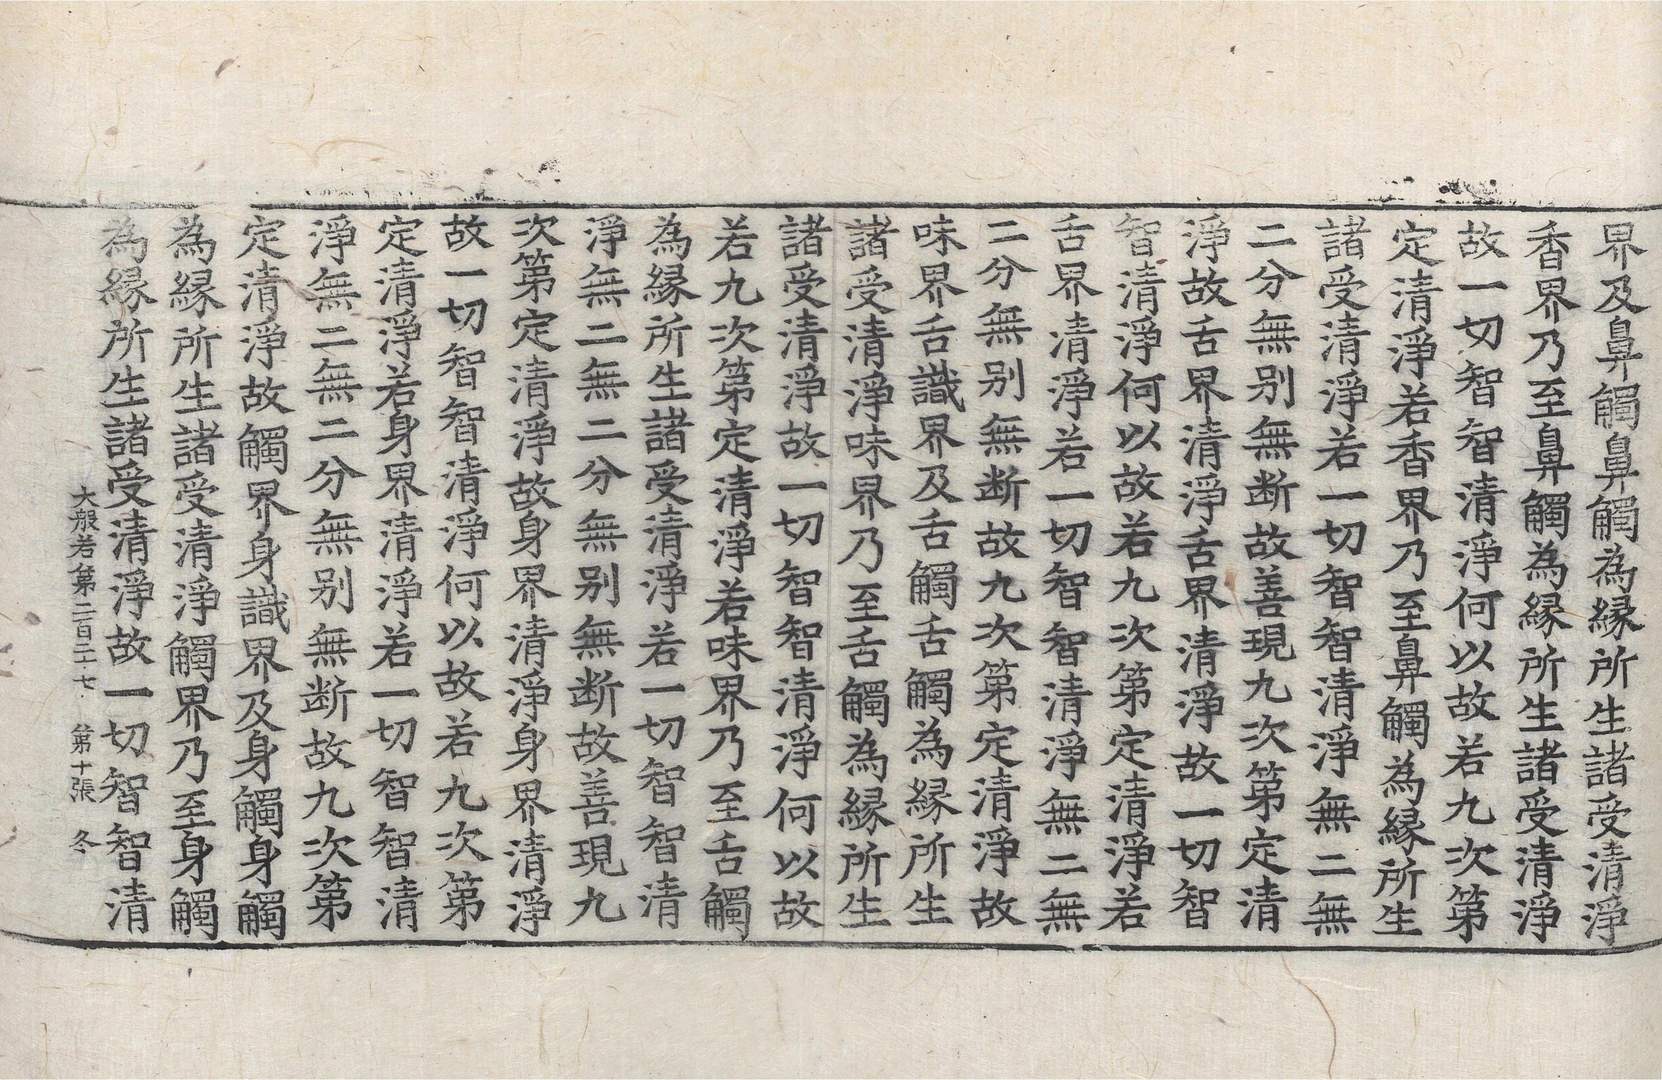 界及鼻觸鼻觸為縁所生諸受清淨
香界乃至鼻觸為縁所生諸受清淨
故一切智智清淨何以故若九次第
定清淨若香界乃至鼻觸為縁所生
諸受清淨若一切智智清淨無二無
二分無别無断故善現九次第定清
淨故舌界清淨舌界清淨故一切智
智清淨何以故若九次第定清淨若
舌界清淨若一切智智清淨無二無
二分無别無断故九次第定清淨故
味界舌識界及舌觸舌觸為縁所生
諸受清淨味界乃至舌觸為縁所生
諸受清淨故一切智智清淨何以故
若九次第定清淨若味界乃至舌觸
為縁所生諸受清淨若一切智智清
淨無二無二分無别無断故善現九
次第定清淨故身界清淨身界清淨
故一切智智清淨何以故若九次第
定清淨若身界清淨若一切智智清
淨無二無二分無别無断故九次第
定清淨故觸界身識界及身觸身觸
為縁所生諸受清淨觸界乃至身觸
為縁所生諸受清淨故一切智智清
大般若第二百二十七 第十張 冬